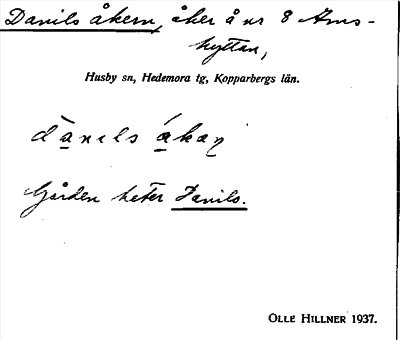 Danils åkern, åker å nr 8 Ams-
hyttan,
Husby sn, Hedemora tg, Kopparbergs län.
dànils ákaṇ
Gården heter Danils.
OLLE HILLNER 1937.